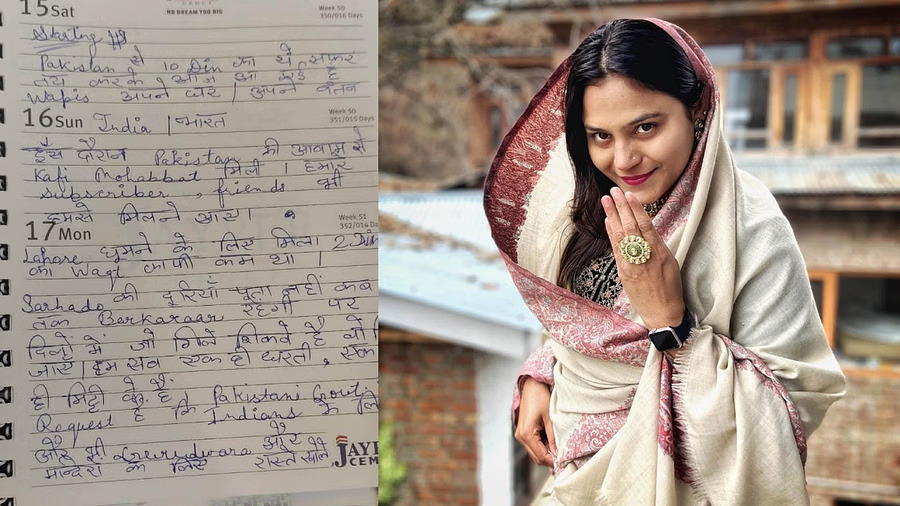 15 Sat
Week 50
350/016 Days
DANCE
NO DREAM YOU BIG
Starting
Pakistan से 10 Din का ये सफर
तय करके आज आ गई है
Wapis अपने घर | अपने वतन
16 Sun
Week 50
351/015 Days
India | भारत
इस दौरान Pakistan की आवाम से
Kafi Mohabbat मिली | हमारे
subscriber, friends भी
हमसे मिलने आए।
17 Mon
Week 51
352/014
Lahore घुमने के लिए मिला 2 Din
का Waqt काफी कम था |
Sarhado की दूरियाँ पता नहीं कब
तक Barkaraar रहेगी पर
दिलों में जो गिले शिकवे है वो
जाए | हम सब एक ही धरती, एक
ही मिट्टी के है
Request है कि Pakistani Govt.
Indians के लिए
और भी Gurudwara और
मन्दिरों के लिए रास्ते खोले
JAY
CEM